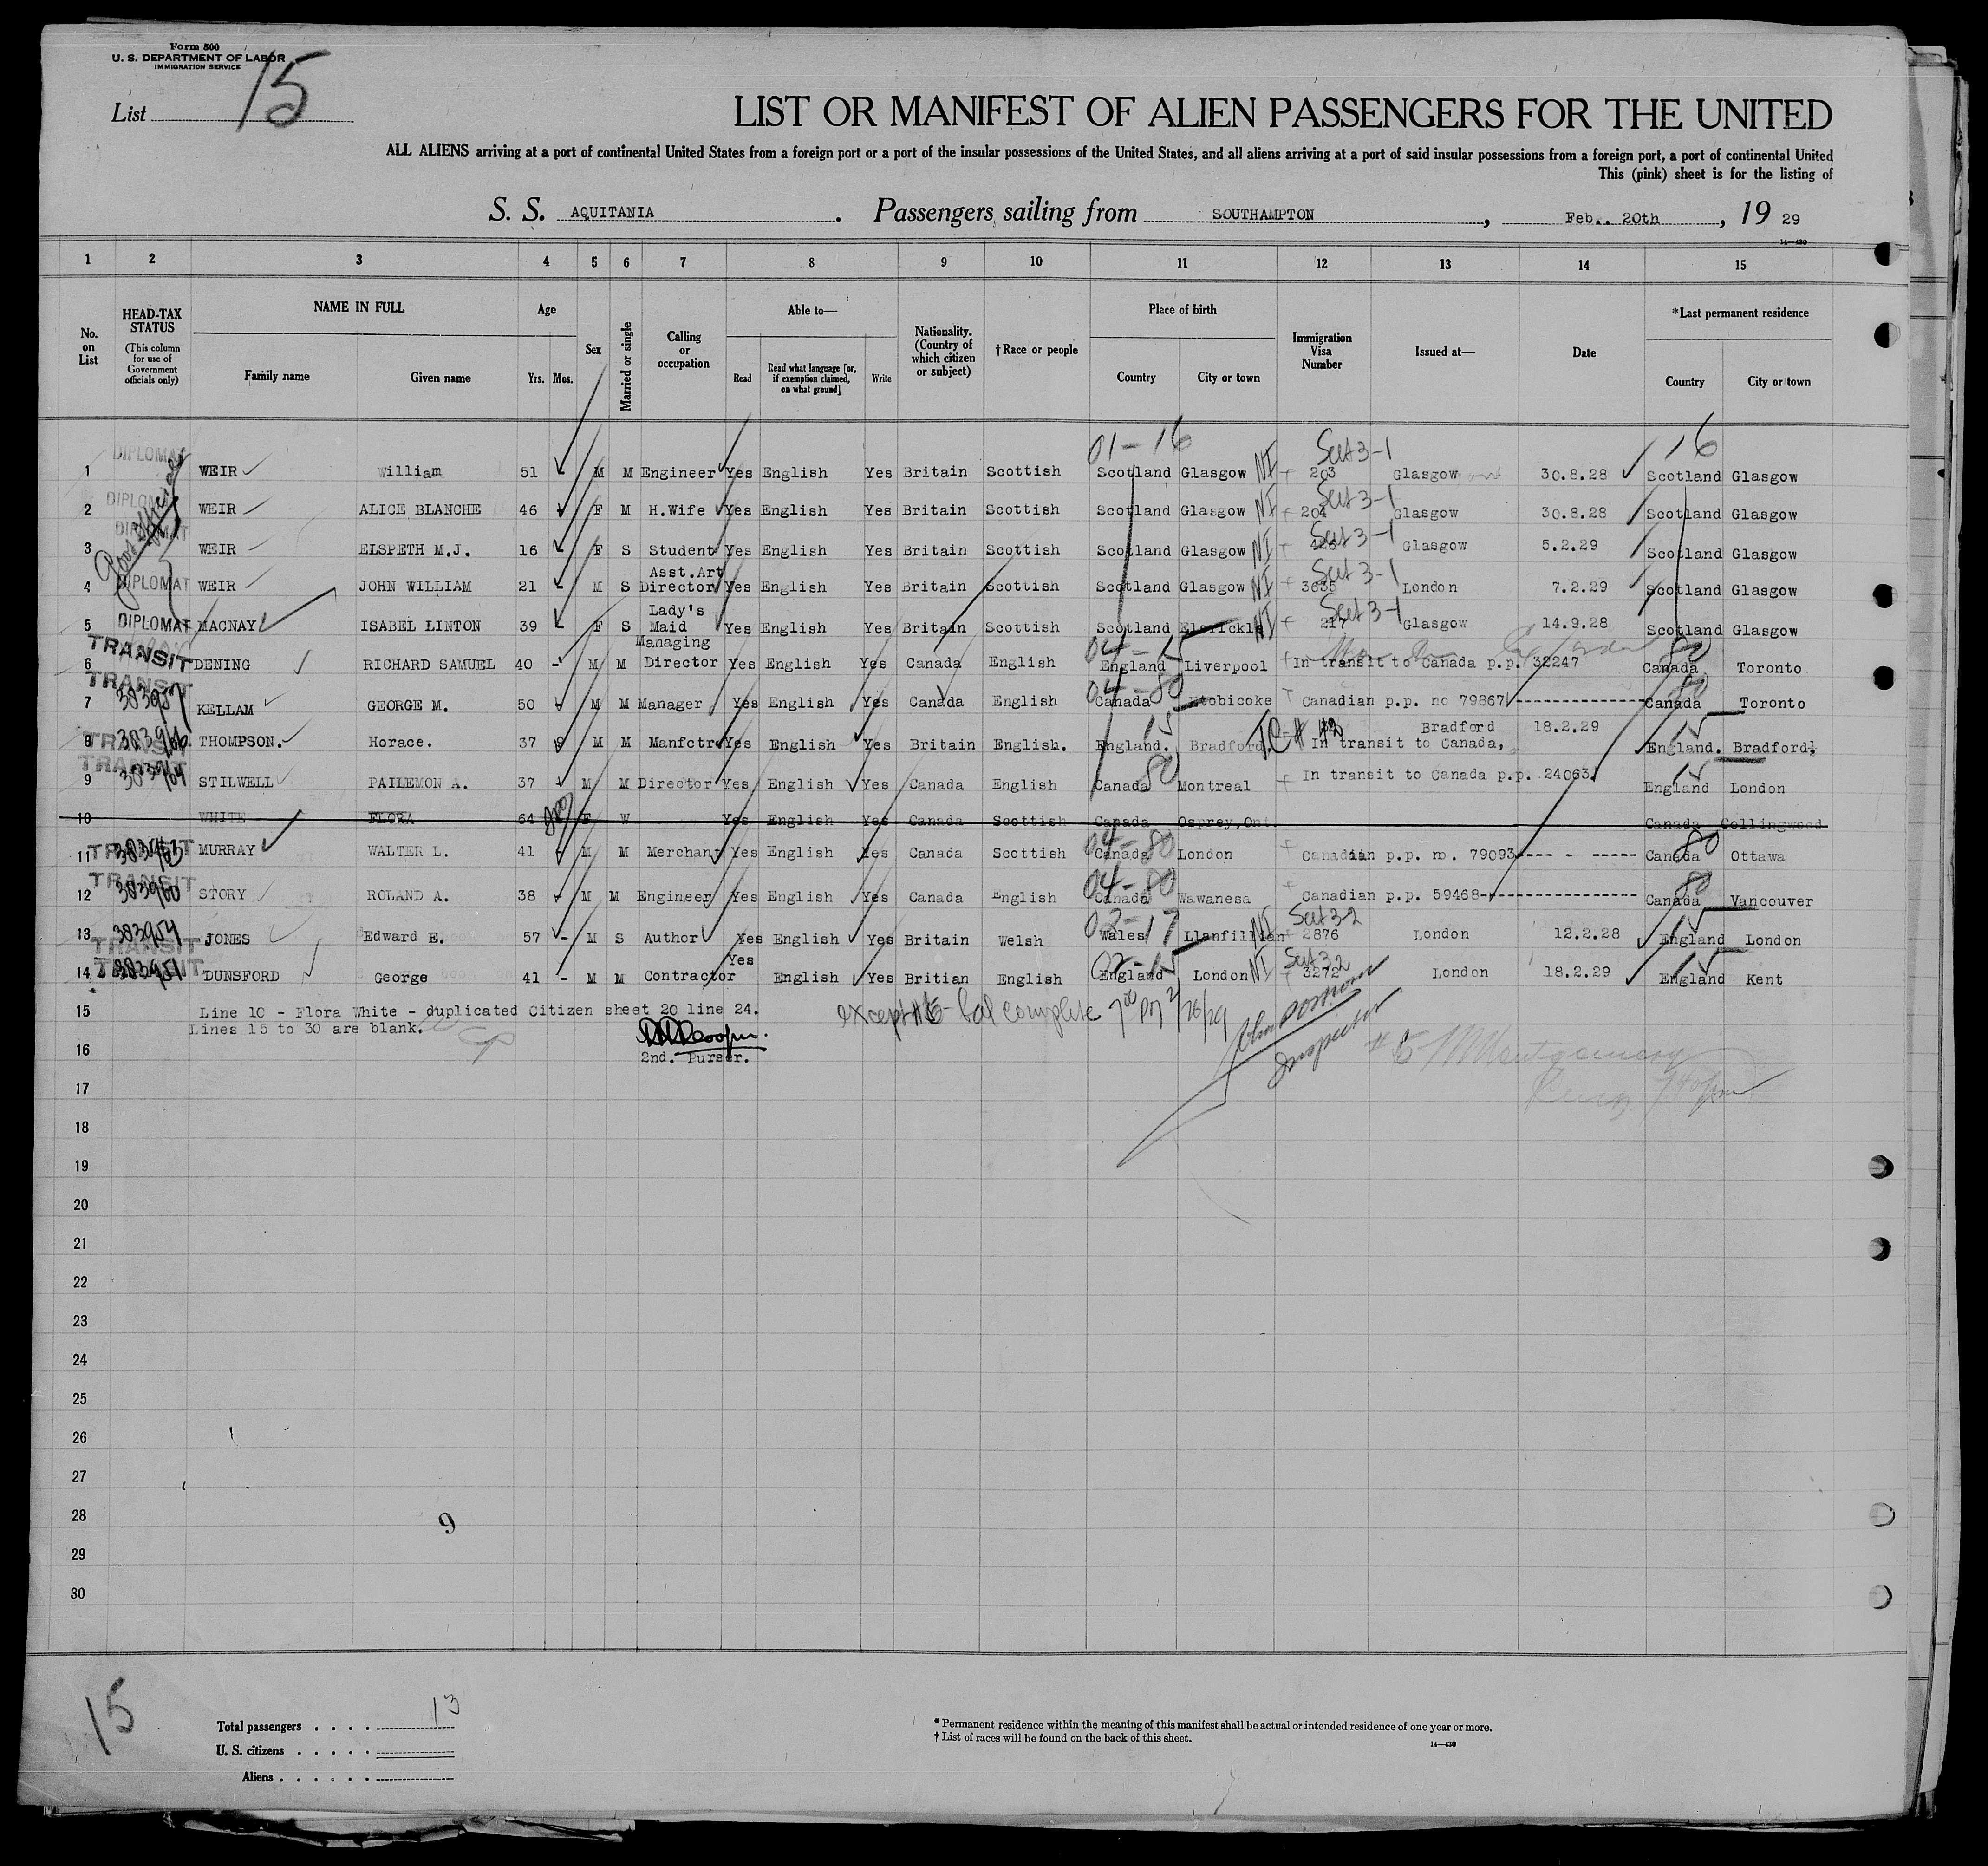 Form 500
U. S. DEPARTMENT OF LABOR
IMMIGRATION SERVICE
List 15
LIST OR MANIFEST OF ALIEN PASSENGERS FOR THE UNITED
ALL ALIENS arriving at a port of continental United States from a foreign port or a port of the insular possessions of the United States, and all aliens arriving at a port of said insular possessions from a foreign port, a port of continental United
This (pink) sheet is for the listing of
S. S. AQUITANIA. Passengers sailing from SOUTHAMPTON, Feb.. 20th, 19 29
14—430
1 2 3 4 5 6 7 8 9 10 11 12 13 14 15
No. on List HEAD-TAX STATUS (This column for use of Government officials only) NAME IN FULL Family name Given name Age Yrs. Mos. Sex Married or single Calling or occupation Able to— Read Read what language [or, if exemption claimed, on what ground] Write Nationality. (Country of which citizen or subject) †Race or people Place of birth Country City or town Immigration Visa Number Issued at— Date *Last permanent residence Country City or town
01-16 Sect 3-1 16
1 DIPLOMAT WEIR William 51 M M Engineer Yes English Yes Britain Scottish Scotland Glasgow NI 203 Glasgow 30.8.28 Scotland Glasgow
2 DIPLOMAT WEIR ALICE BLANCHE 46 F M H.Wife Yes English Yes Britain Scottish Scotland Glasgow NI 204 Sect 3-1 Glasgow 30.8.28 Scotland Glasgow
3 DIPLOMAT WEIR ELSPETH M.J. 16 F S Student Yes English Yes Britain Scottish Scotland Glasgow NI Sect 3-1 Glasgow 5.2.29 Scotland Glasgow
4 DIPLOMAT WEIR JOHN WILLIAM 21 M S Asst.Art Director Yes English Yes Britain Scottish Scotland Glasgow NI 3635 Sect 3-1 London 7.2.29 Scotland Glasgow
5 DIPLOMAT MACNAY ISABEL LINTON 39 F S Lady's Maid Yes English Yes Britain Scottish Scotland Elsrickle NI 217 Sect 3-1 Glasgow 14.9.28 Scotland Glasgow
6 TRANSIT DENING RICHARD SAMUEL 40 - M M Managing Director Yes English Yes Canada English 04-15 England Liverpool In transit to Canada p.p. 32247 80 Canada Toronto
7 TRANSIT 383957 KELLAM GEORGE M. 50 - M M Manager Yes English Yes Canada English 04-80 Canada Etobicoke Canadian p.p. no 79867 80 Canada Toronto
8 TRANSIT THOMPSON. Horace. 37 M M Manfctr Yes English Yes Britain English. 15 England. Bradford. T.C# In transit to Canada, Bradford 18.2.29 15 England. Bradford,
9 TRANSIT STILWELL PAILEMON A. 37 - M M Director Yes English Yes Canada English 80 Canada Montreal In transit to Canada p.p. 24063. 15 England London
10 WHITE FLORA 64 F W Yes English Yes Canada Scottish Canada Osprey,Ont. Canada Collingwood
11 TRANSIT MURRAY WALTER L. 41 - M M Merchant Yes English Yes Canada Scottish 04-80 Canada London Canadian p.p. no. 79093 80 Canada Ottawa
12 TRANSIT 383960 STORY ROLAND A. 38 - M M Engineer Yes English Yes Canada English 04-80 Canada Wawanesa Canadian p.p. 59468 80 Canada Vancouver
13 TRANSIT 383954 JONES Edward E. 57 - M S Author Yes English Yes Britain Welsh 02-17 Wales Llanfillian NI 2876 Sect 3-2 London 12.2.28 15 England London
14 TRANSIT 383951 DUNSFORD George 41 - M M Contractor Yes English Yes Britian English 02-15 England London NI 3272 Sect 3.2 London 18.2.29 15 England Kent
15 Line 10 - Flora White - duplicated Citizen sheet 20 line 24.
Lines 15 to 30 are blank.
except #6 - bal complete 7 00 PM 2/26/29
Inspector
16 2nd. Purser.
#6 Montgomery
17
18
19
20
21
22
23
24
25
26
27
28
9
29
30
15
Total passengers . . . . 13
U. S. citizens . . . . .
Aliens . . . . . .
* Permanent residence within the meaning of this manifest shall be actual or intended residence of one year or more.
† List of races will be found on the back of this sheet.
14—430